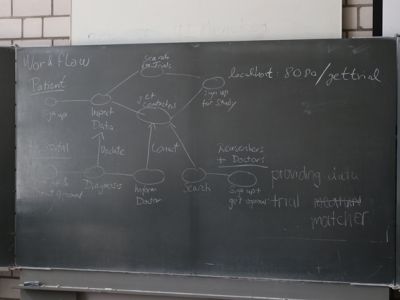 Workflow
Patient
Search
for trials
sign up
for study
localhost:8080/gettrial
get
contacted
sign up
Input
Data
Update
Contact
Hospital
Researchers
+ Doctors
Diagnosis
Inform
Doctor
Search
sign up +
get approval
providing data
trial
matcher